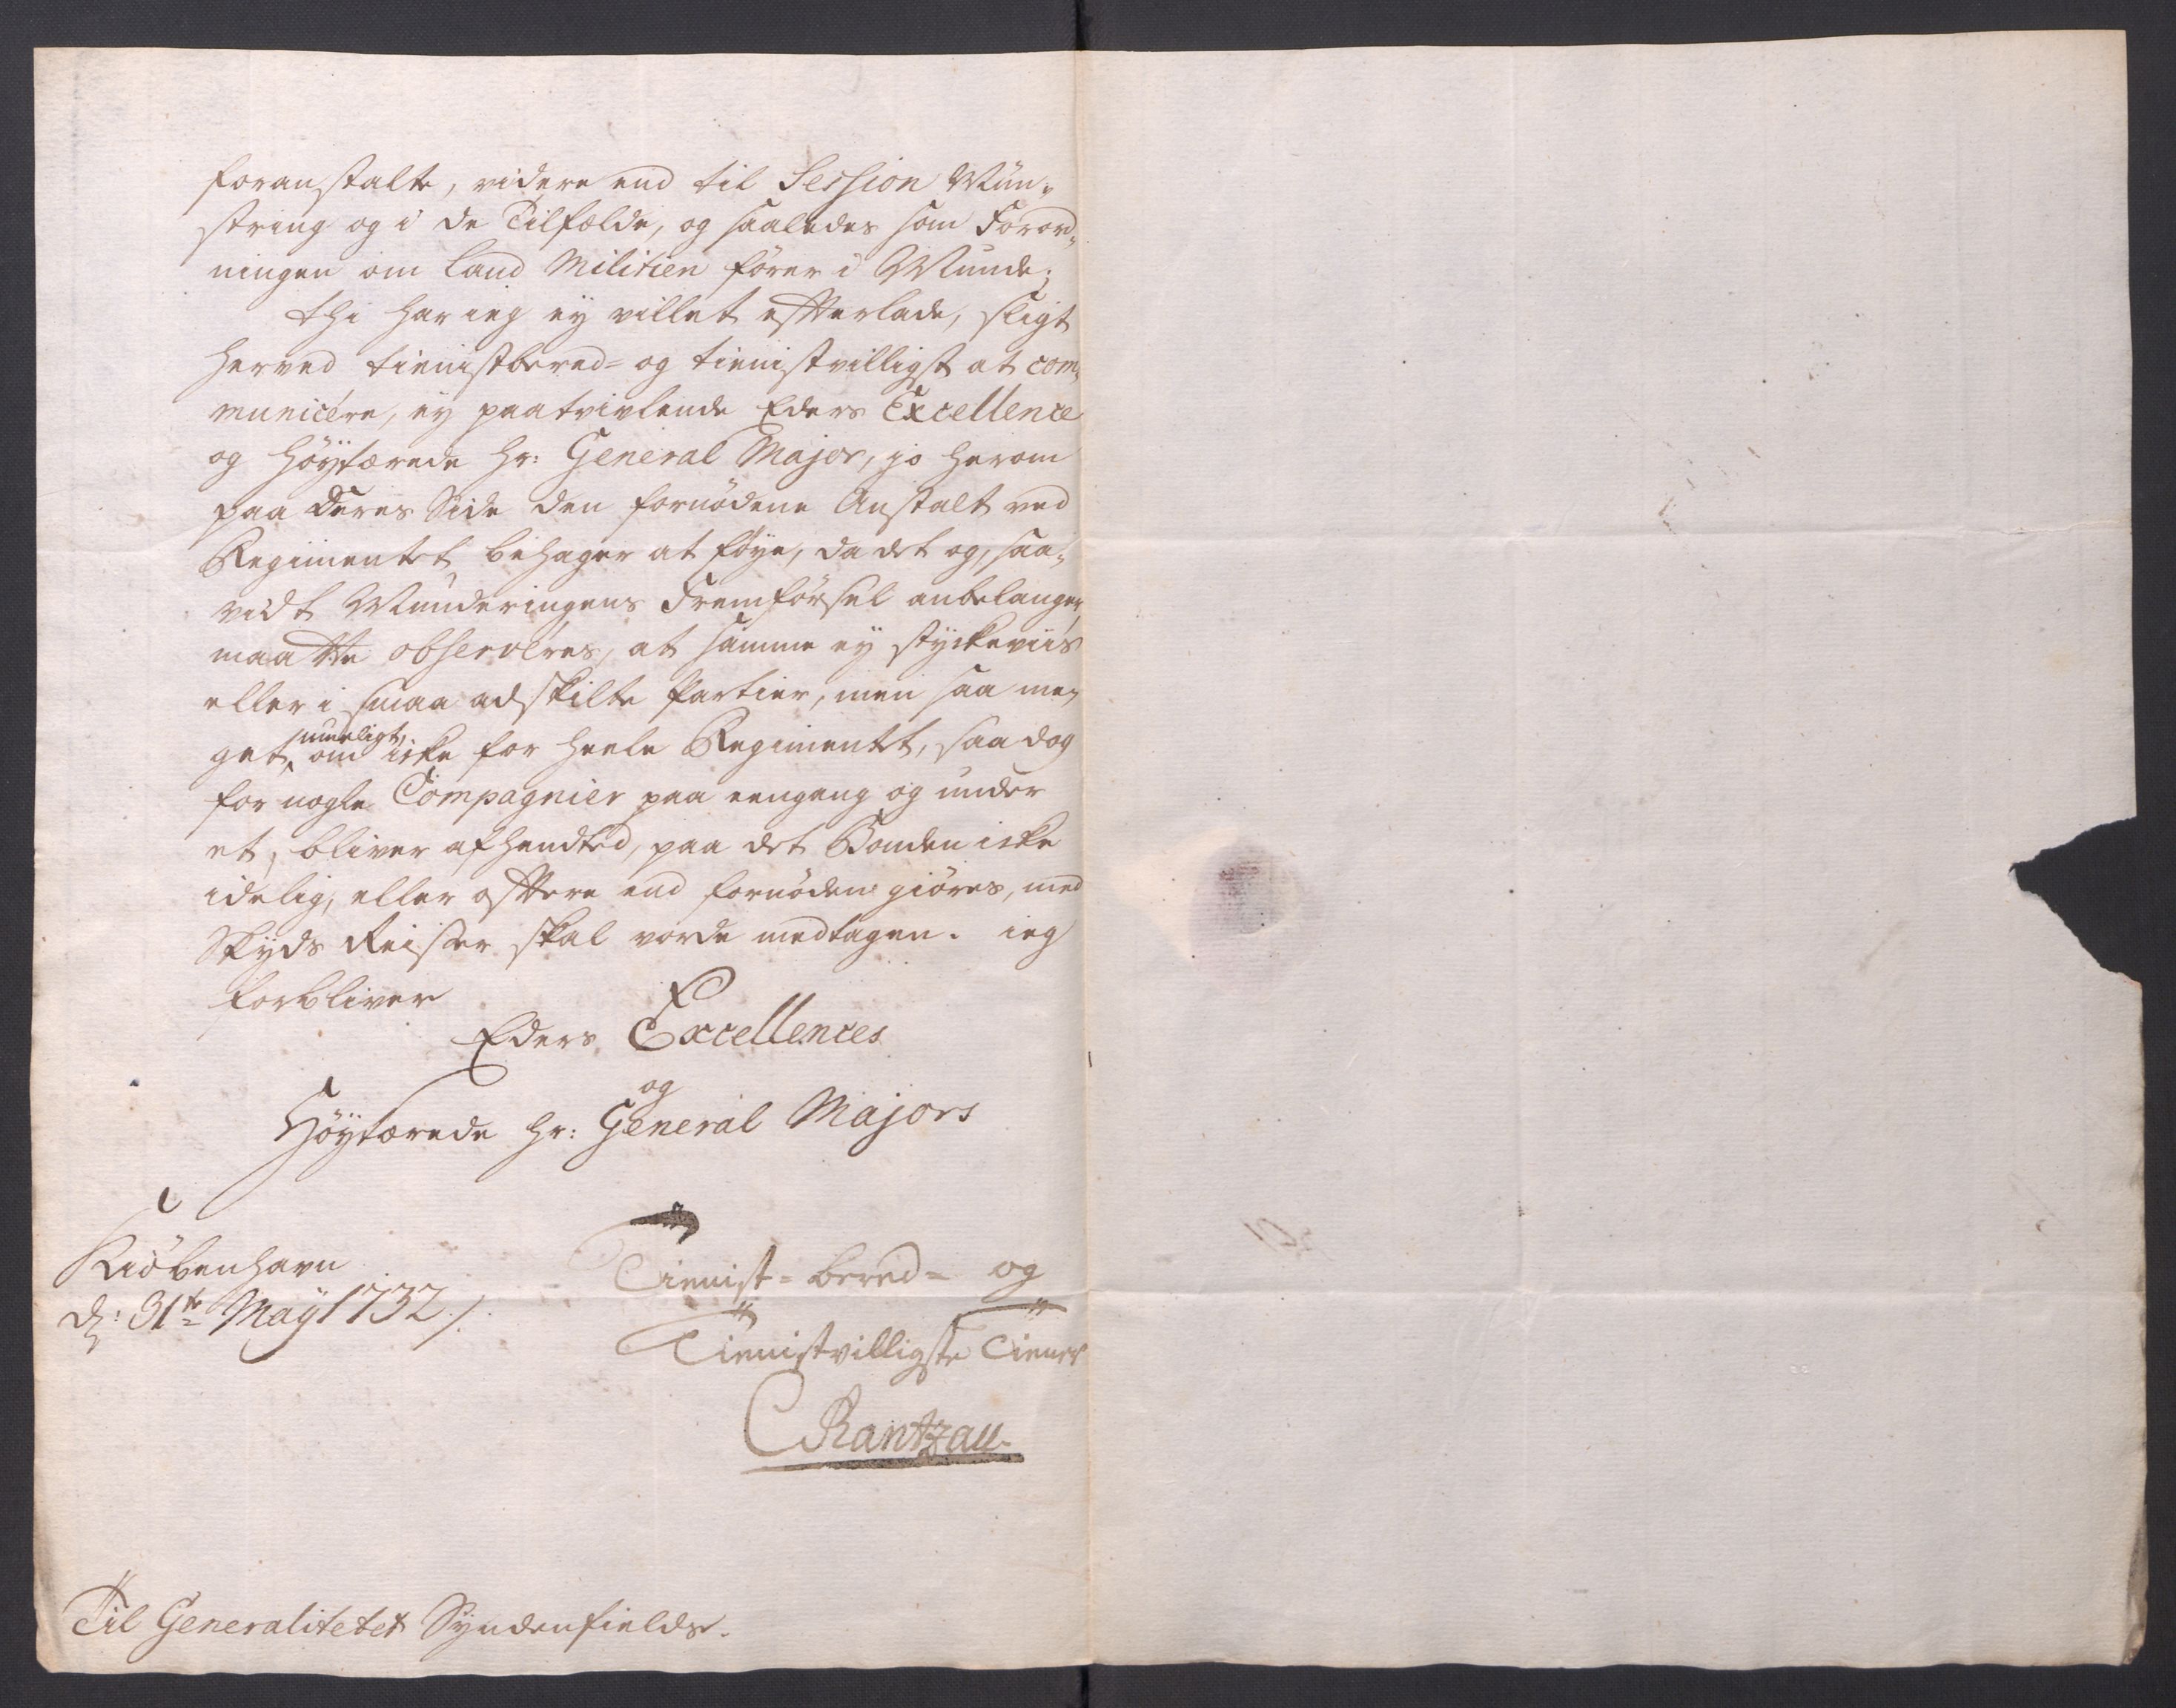 foranstalte, videre end til Session Mün-
string og i de Tilfælde, og saaledes som Forord-
ningen om Land Militien fører i Munde;
thi har ieg ey villet efterlade, sligt
herved tienistbered- og tienistvilligst at com-
municére, ey paatvivlende Eders Excellence
og Höytærede Hr: General Major, jo herom
paa Deres Side den fornödene Anstalt ved
Regimentet behager at föye, da det og, saa-
vidt Munderingens Fremförsel anbelanger,
maatte observéres, at samme ey styckeviis
eller i smaa adskilte Partier, men saa me-
get mueligt, om icke for heele Regimentet, saa dog
for nogle Compagnier paa eengang og under
et, bliver afhendted, paa det Bonden icke
idelig, eller oftere end fornöden giöres, med
Skyds Reiser skal vorde medtagen. ieg
forbliver
Eders Excellences
og
Höytærede Hr: General Majors
Kiöbenhavn
d: 31te May 1732 /.
Tienist-bered- og
Tienistvilligste Tiener
CRantzau
Til Generalitetet Syndenfields.